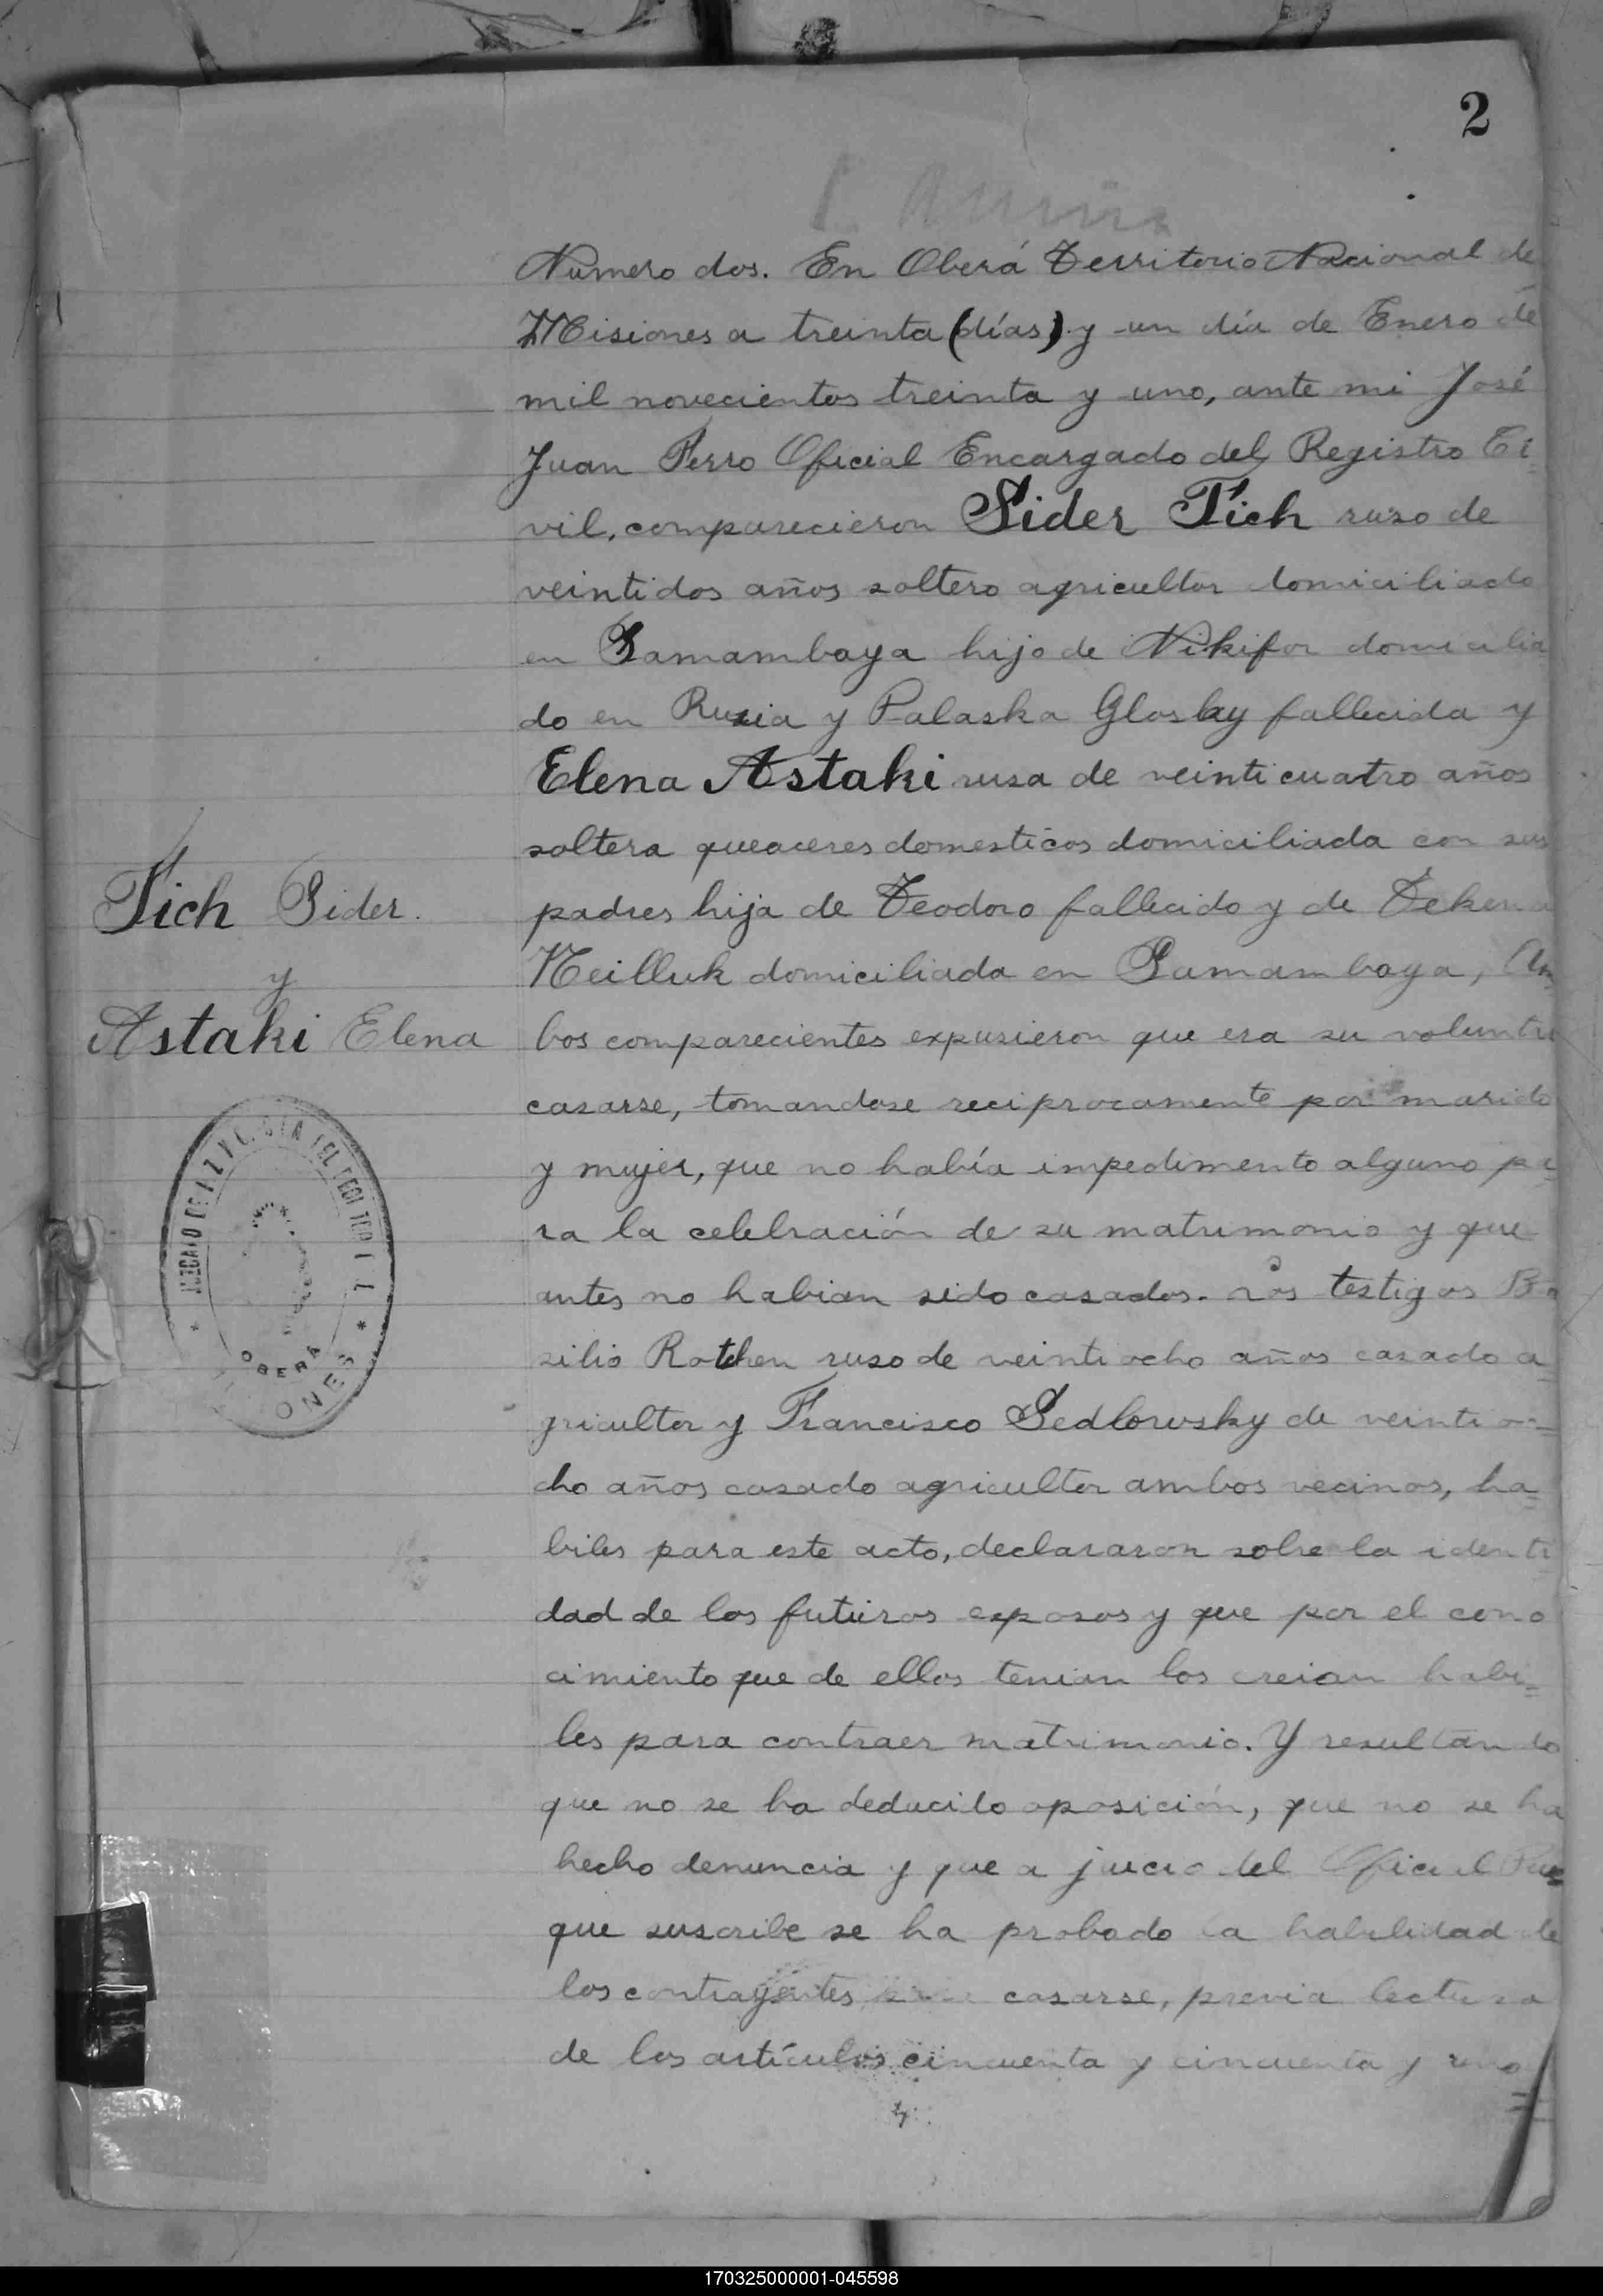 2
Numero dos. En Oberá Territorio Nacional de
Misiones a treinta (días) y un día de Enero de
mil novecientos treinta y uno, ante mi José
Juan Ferro Oficial Encargado del Registro Ci=
vil, comparecieron Sider Fich ruso de
veintidos años soltero agricultor domiciliado
en Samambaya hijo de Nikifor domicilia
do en Rusia y Palaska Glosky fallecida y
Elena Astaki rusa de veinticuatro años
soltera queaceres domesticos domiciliada con sus
padres hija de Teodoro fallecido y de Tekena
Keilluk domiciliada en Samambaya, Am
bos comparecientes expusieron que era su volunta
casarse, tomandose reciprocamente por marido
y mujer, que no había impedimento alguno pa=
ra la celebración de su matrimonio y que
antes no habian sido casados. Los testigos Ba
silio Rotchen ruso de veintiocho años casado a=
gricultor y Francisco Sedlowsky de veintio=
cho años casado agricultor ambos vecinos, ha=
biles para este acto, declararon sobre la identi
dad de los futuros esposos y que por el cono
cimiento que de ellos tenian los creian habi=
les para contraer matrimonio. Y resultando
que no se ha deducido oposición, que no se ha
hecho denuncia y que a juicio del Oficial
que suscribe se ha probado la habilidad de
los contrayentes para casarse, previa lectura
de los artículos cincuenta y cincuenta y uno
Fich Sider.
y
Astaki Elena
JUZGADO DE PAZ
OBERA
170325000001-045598